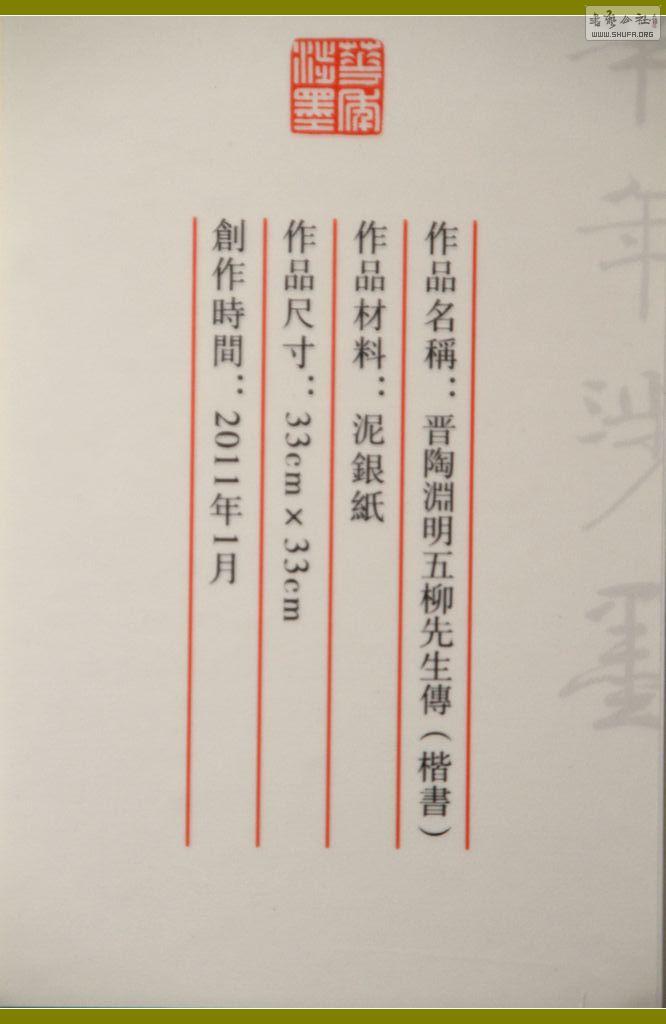 書藝公社
WWW.SHUFA.ORG
華年涉墨
華年
涉墨
作品名稱：晋陶淵明五柳先生傳（楷書）
作品材料：泥銀紙
作品尺寸：33cm×33cm
創作時間：2011年1月